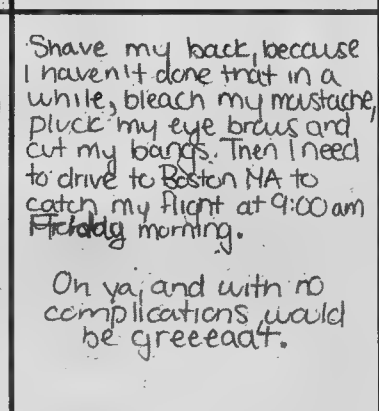 Shave my back, because
I haven't done that in a
while, bleach my mustache,
pluck my eye brows and
cut my bangs. Then I need
to drive to Boston MA to
catch my flight at 9:00 am
Friday morning.
Oh ya, and with no
complications would
be greeeaat.